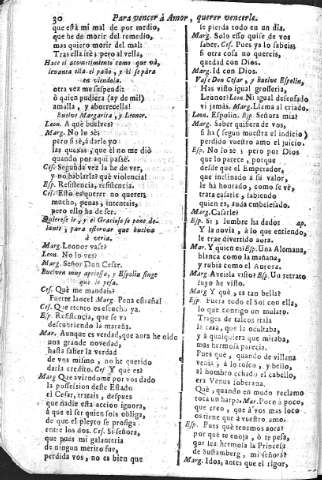 30 Para vencer à Amor, querer vencerle.
que està mi mal de por medio,
que he de morir del remedio,
mas quiero morir del mal:
Tras ella irè; pero al verla,
Hace el acontecimiento como que và,
levanta el paño, y se para
en viendola.
otra vez me suspendi!
ò quien pudiera (ay de mi)
amalla, y aborrecella!
Buelve Margarita, y Leonor.
Leon. A què buelves?
Marg. No lo sè:
pero si sè, à darle yo
las quexas, que èl no me diò
quando por aqui passè.
Ces. Segunda vez la he de ver,
y no hablarla? què violencia!
Esp. Resistencia, resistencia.
Ces. Esto es querer no querer:
mucho, penas, intentais,
pero ello ha de ser.
Quierese ir, y el Gracioso se pone delante,
para estorvar que buelva
à verla.
Marg. Leonor vase?
Leon. No lo ves?
Marg. Señor Don Cesar.
Buelven muy apriessa, y Espolin finge
que le pesa.
Ces. Què me mandais?
Fuerte lance! Marg. Pena estraña!
Ces. Que atento os escucho ya.
Esp. Resistencia, que se và
descubriendo la maraña.
Mar. Aunque es verdad, que aora he oido
una grande novedad,
hasta saber la verdad
de vos mismo, no he querido
darla credito. Ces. Y què es?
Marg. Que aviendome por vos dado
la possession deste Estado
el Cesar, tratais, despues
que nadie esta accion ignora,
à que el ser quien sois obliga,
de que el pleyto se prosiga
entre los dos. Ces. Si señora,
que pues mi galanteria
de ningun merito fue,
perdida vos, no es bien que
le pierda todo en un dia.
Marg. Solo esso quise de vos
saber. Ces. Pues ya lo sabeis;
si otra cosa no quereis,
quedad con Dios.
Marg. Id con Dios.
Vase Don Cesar, y buelve Espolin.
Has visto igual grosseria,
Leonor? Leon. Ni igual desenfado
vi jamàs. Marg. Llama al criado.
Leon. Espolin. Esp. Señora mia?
Marg. Saber quisiera de vos,
si ha (segun muestra el indicio)
perdido vuestro amo el juicio.
Esp. No lo sè; pero por Dios
que lo parece, porque
desde que el Emperador,
que inclinado à su valor,
le ha honrado, como se vè,
trata casarle, sabiendo
quien es, anda embelesado.
Marg. Casarle?
Esp. Si; lumbre ha dado ap.
Y la novia, à lo que entiendo,
le trae divertido aora.
Mar. Y quien es? Esp. Una Alemana,
blanca como la mañana,
y rubia como el Aurora.
Marg. Aveisla visto? Esp. Un retrato
suyo he visto.
Marg. Y què, es tan bella?
Esp. Fuera todo el Sol con ella,
lo que contigo un mulato.
Trages de tales trata
la cara, que la ocultaba,
y à qualquiera que miraba,
mas hermosa parecia.
Pues què, quando de villana
vestia, à lo tosco, y bello,
al hombro echado el cabello,
era Venus soberana.
Què, quando en mudo reclamo
toca un harpa. Mar. Poco à poco,
que creo, que à vos mas loco
os tiene que à vuestro amo.
Esp. Pues què tenemos aora?
por què te enoja, ò te pesa,
que sea hermosa la Princesa
de Sustamberg, mi señora?
Marg. Idos, antes que el rigor,